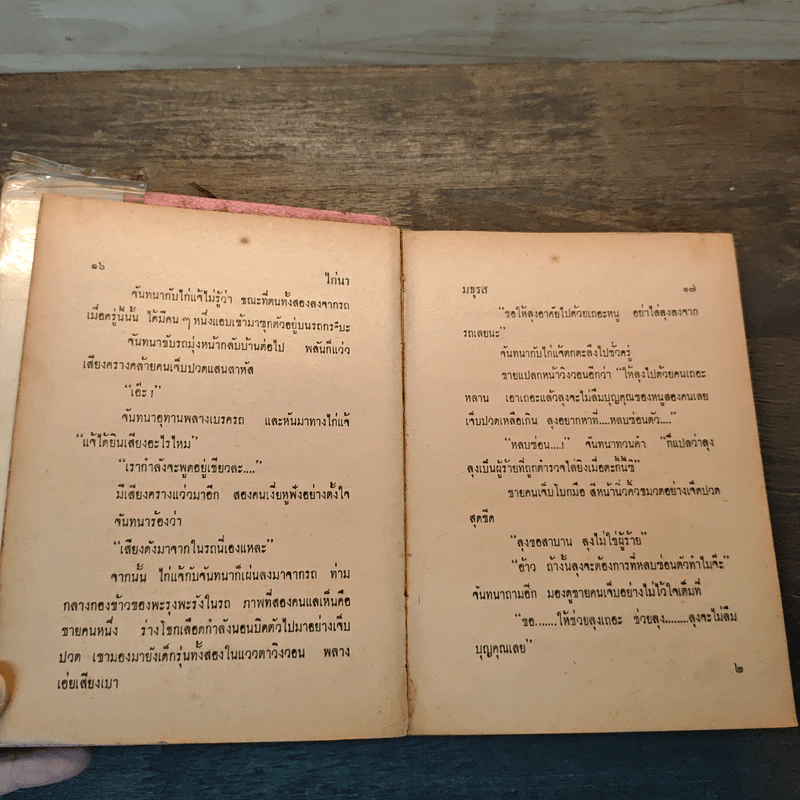 ๑๖
ไก่นา
จันทนากับไก่แจ้ไม่รู้ว่า ขณะที่ตนทั้งสองลงจากรถ
เมื่อครู่นี้นั้น ได้มีคน ๆ หนึ่งแอบเข้ามาซุกตัวอยู่บนรถกระบะ
จันทนาขับรถมุ่งหน้ากลับบ้านต่อไป พลันก็แว่ว
เสียงครางคล้ายคนเจ็บปวดแสนสาหัส
“เอ๊ะ !”
จันทนาอุทานพลางเบรครถ และหันมาทางไก่แจ้
“แจ้ได้ยินเสียงอะไรไหม”
“เรากำลังจะพูดอยู่เชียวละ....”
มีเสียงครางแว่วมาอีก สองคนเงี่ยหูฟังอย่างตั้งใจ
จันทนาร้องว่า
“เสียงดังมาจากในรถนี่เองแหละ”
จากนั้น ไก่แจ้กับจันทนาก็เผ่นลงมาจากรถ ท่าม
กลางกองข้าวของพะรุงพะรังในรถ ภาพที่สองคนแลเห็นคือ
ชายคนหนึ่ง ร่างโชกเลือดกำลังนอนบิดตัวไปมาอย่างเจ็บ
ปวด เขามองมายังเด็กรุ่นทั้งสองในแววตาวิงวอน พลาง
เอ่ยเสียงเบา
มธุรส
๑๗
“ขอให้ลุงอาศัยไปด้วยเถอะหนู อย่าไล่ลุงลงจาก
รถเลยนะ”
จันทนากับไก่แจ้ตกตะลึงไปชั่วครู่
ชายแปลกหน้าวิงวอนอีกว่า “ให้ลุงไปด้วยคนเถอะ
หลาน เอาเถอะแล้วลุงจะไม่ลืมบุญคุณของหนูสองคนเลย
เจ็บปวดเหลือเกิน ลุงอยากหาที่....หลบซ่อนตัว....”
“หลบซ่อน....!” จันทนาทวนคำ “ก็แปลว่าลุง
ลุงเป็นผู้ร้ายที่ถูกตำรวจไล่ยิงเมื่อตะกี้นี้ซิ”
ชายคนเจ็บโบกมือ สีหน้านิ่วคิ้วขมวดอย่างเจ็ดปวด
สุดขีด
“ลุงขอสาบาน ลุงไม่ใช่ผู้ร้าย”
“อ้าว ถ้างั้นลุงจะต้องการที่หลบซ่อนตัวทำไมจ๊ะ”
จันทนาถามอีก มองดูชายคนเจ็บอย่างไม่ไว้ใจเต็มที่
“ขอ.......ให้ช่วยลุงเถอะ ช่วยลุง.......ลุงจะไม่ลืม
บุญคุณเลย”
๒